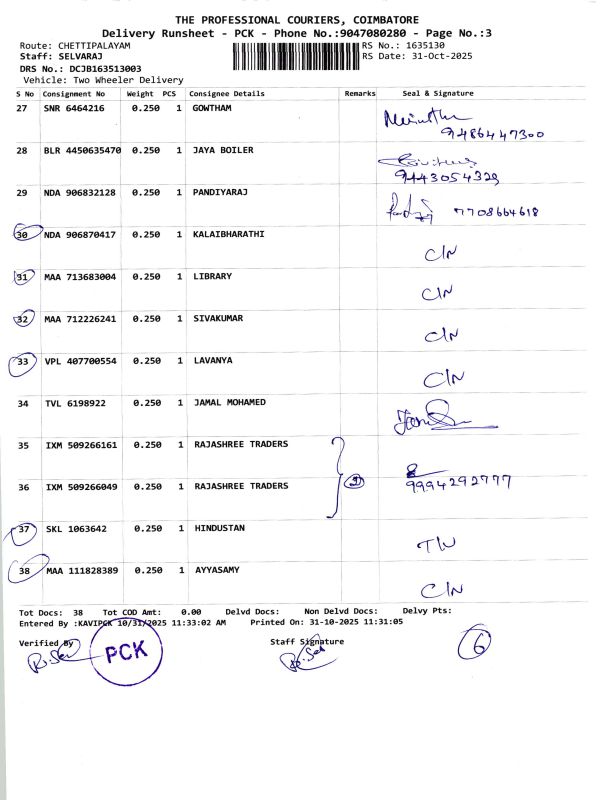 THE PROFESSIONAL COURIERS, COIMBATORE
Delivery Runsheet - PCK - Phone No.:9047080280 - Page No.:3
Route: CHETTIPALAYAM RS No.: 1635130
Staff: SELVARAJ RS Date: 31-Oct-2025
DRS No.: DCJB163513003
Vehicle: Two Wheeler Delivery
S No Consignment No Weight PCS Consignee Details Remarks Seal & Signature
27 SNR 6464216 0.250 1 GOWTHAM
9486447300
28 BLR 4450635470 0.250 1 JAYA BOILER
9443054329
29 NDA 906832128 0.250 1 PANDIYARAJ 7708664618
30 NDA 906870417 0.250 1 KALAIBHARATHI C/N
31 MAA 713683004 0.250 1 LIBRARY C/N
32 MAA 712226241 0.250 1 SIVAKUMAR C/N
33 VPL 407700554 0.250 1 LAVANYA C/N
34 TVL 6198922 0.250 1 JAMAL MOHAMED
35 IXM 509266161 0.250 1 RAJASHREE TRADERS
36 IXM 509266049 0.250 1 RAJASHREE TRADERS 2 9994292777
37 SKL 1063642 0.250 1 HINDUSTAN
38 MAA 111828389 0.250 1 AYYASAMY C/N
Tot Docs: 38 Tot COD Amt: 0.00 Delvd Docs: Non Delvd Docs: Delvy Pts:
Entered By :KAVIPCK 10/31/2025 11:33:02 AM Printed On: 31-10-2025 11:31:05
Verified By Staff Signature 6
PCK